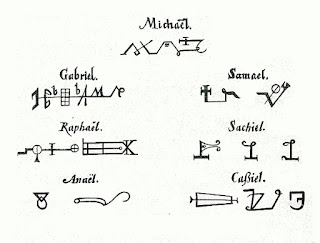 Michaël.
Gabriel.
Samael.
Raphaël.
Sachiel.
Anaël.
Caßiel.